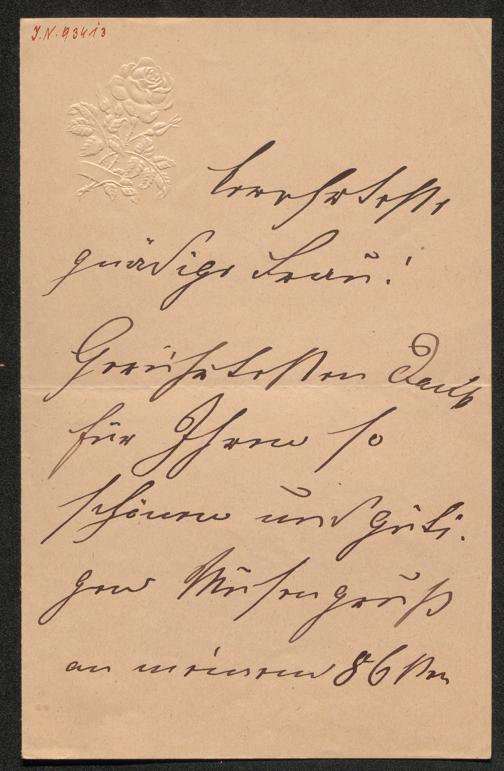 J.N. 93413
Verehrteste
gnädige Frau!
Gerührtesten Dank
für Ihren so
schönen und güti-
gen Musengruß
an meinem 86sten